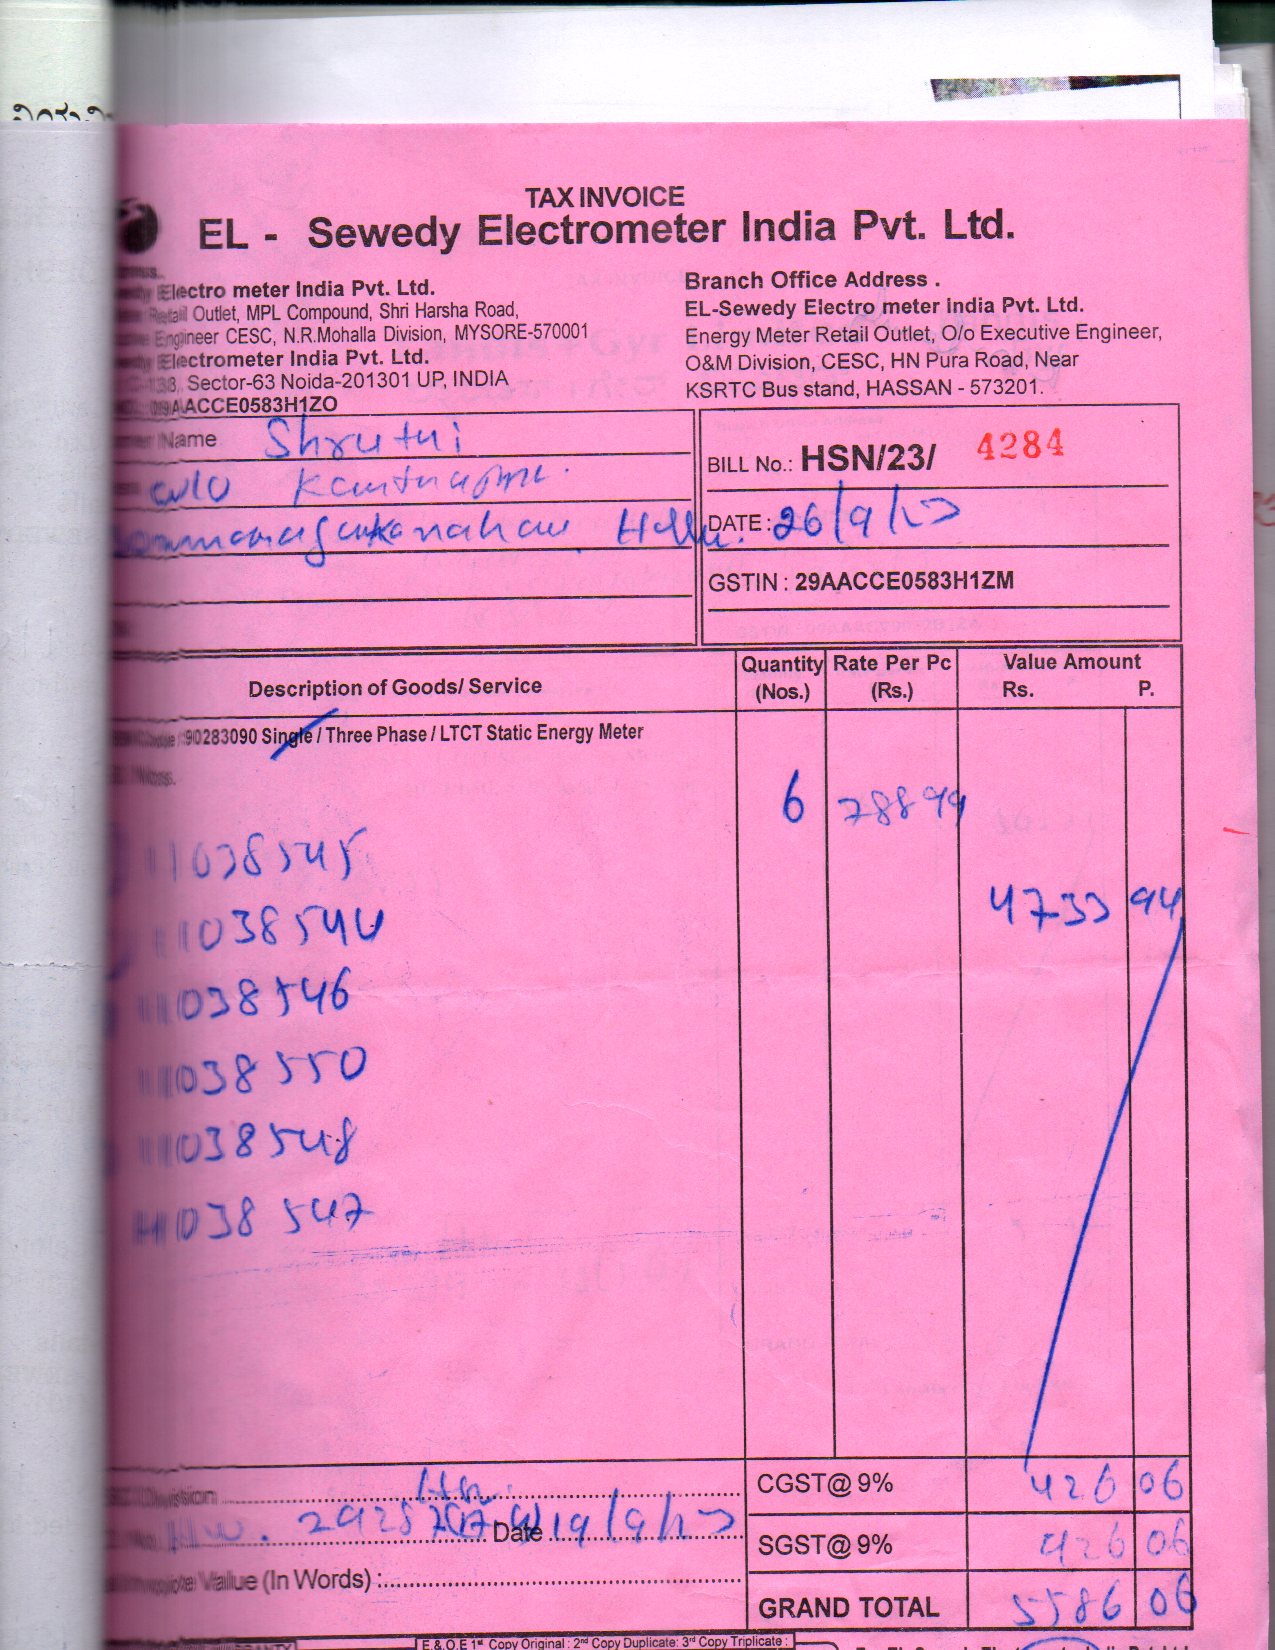 TAX INVOICE
EL - Sewedy Electrometer India Pvt. Ltd.
Electro meter India Pvt. Ltd.
Retail Outlet, MPL Compound, Shri Harsha Road,
Engineer CESC, N.R.Mohalla Division, MYSORE-570001
Electrometer India Pvt. Ltd.
Sector-63 Noida-201301 UP, INDIA
29AACCE0583H1ZO
Branch Office Address .
EL-Sewedy Electro meter india Pvt. Ltd.
Energy Meter Retail Outlet, O/o Executive Engineer,
O&M Division, CESC, HN Pura Road, Near
KSRTC Bus stand, HASSAN - 573201.
Name Shruthi
BILL No.: HSN/23/ 4284
DATE : 26/9/23
GSTIN : 29AACCE0583H1ZM
Description of Goods/ Service
Quantity (Nos.)
Rate Per Pc (Rs.)
Value Amount
Rs. P.
90283090 Single / Three Phase / LTCT Static Energy Meter
6 78899
4733 94
11038545
11038544
11038546
11038550
11038548
11038547
Division Hsn.
Date 19/9/23
Value (In Words) :
CGST@ 9% 426 06
SGST@ 9% 426 06
GRAND TOTAL 5586 06
E.& O.E 1st Copy Original : 2nd Copy Duplicate: 3rd Copy Triplicate :